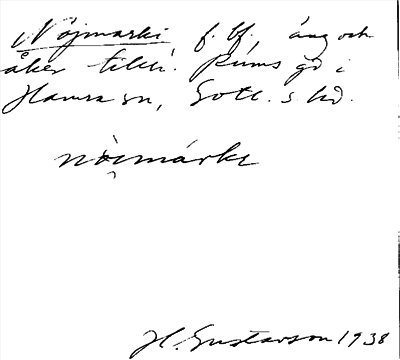 Nöjmarki f. bf. äng och
åker tillh. Rums gd i
Hamra sn, Gotl. s hd.
nòimárkı
H. Gustavson 1938